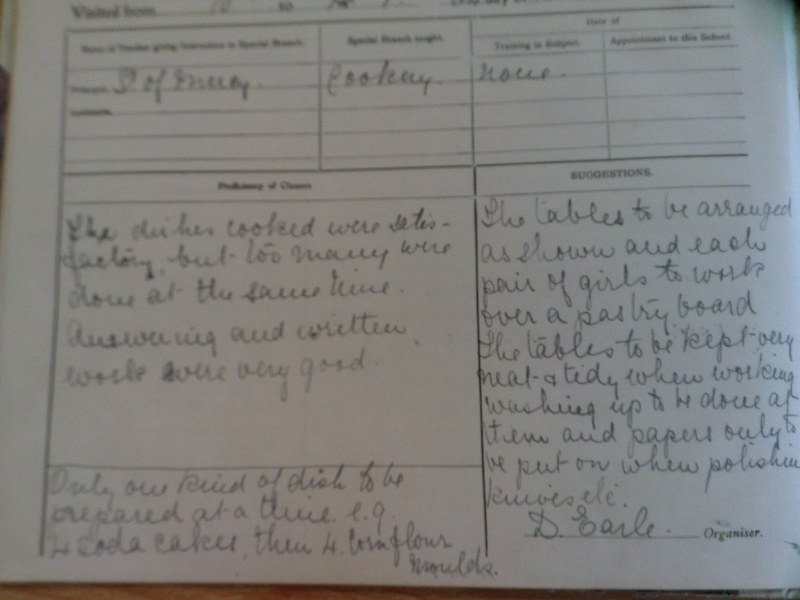 Visited from 10 to
Name of Teacher giving Instruction in Special Branch. Special Branch taught. Date of
Training in Subject. Appointment to this School.
Principal S of Mercy. Cookery. none.
Assistants
Proficiency of Classes
The dishes cooked were satis-
factory, but too many were
done at the same time.
Answering and written
work were very good.
Only one kind of dish to be
prepared at a time. e.g.
4 soda cakes, then 4 cornflour
moulds.
SUGGESTIONS.
The tables to be arranged
as shown and each
pair of girls to work
over a pastry board
The tables to be kept very
neat & tidy when working
washing up to be done at
them and papers only to
be put on when polishin
knives etc.
D. Earle. Organiser.